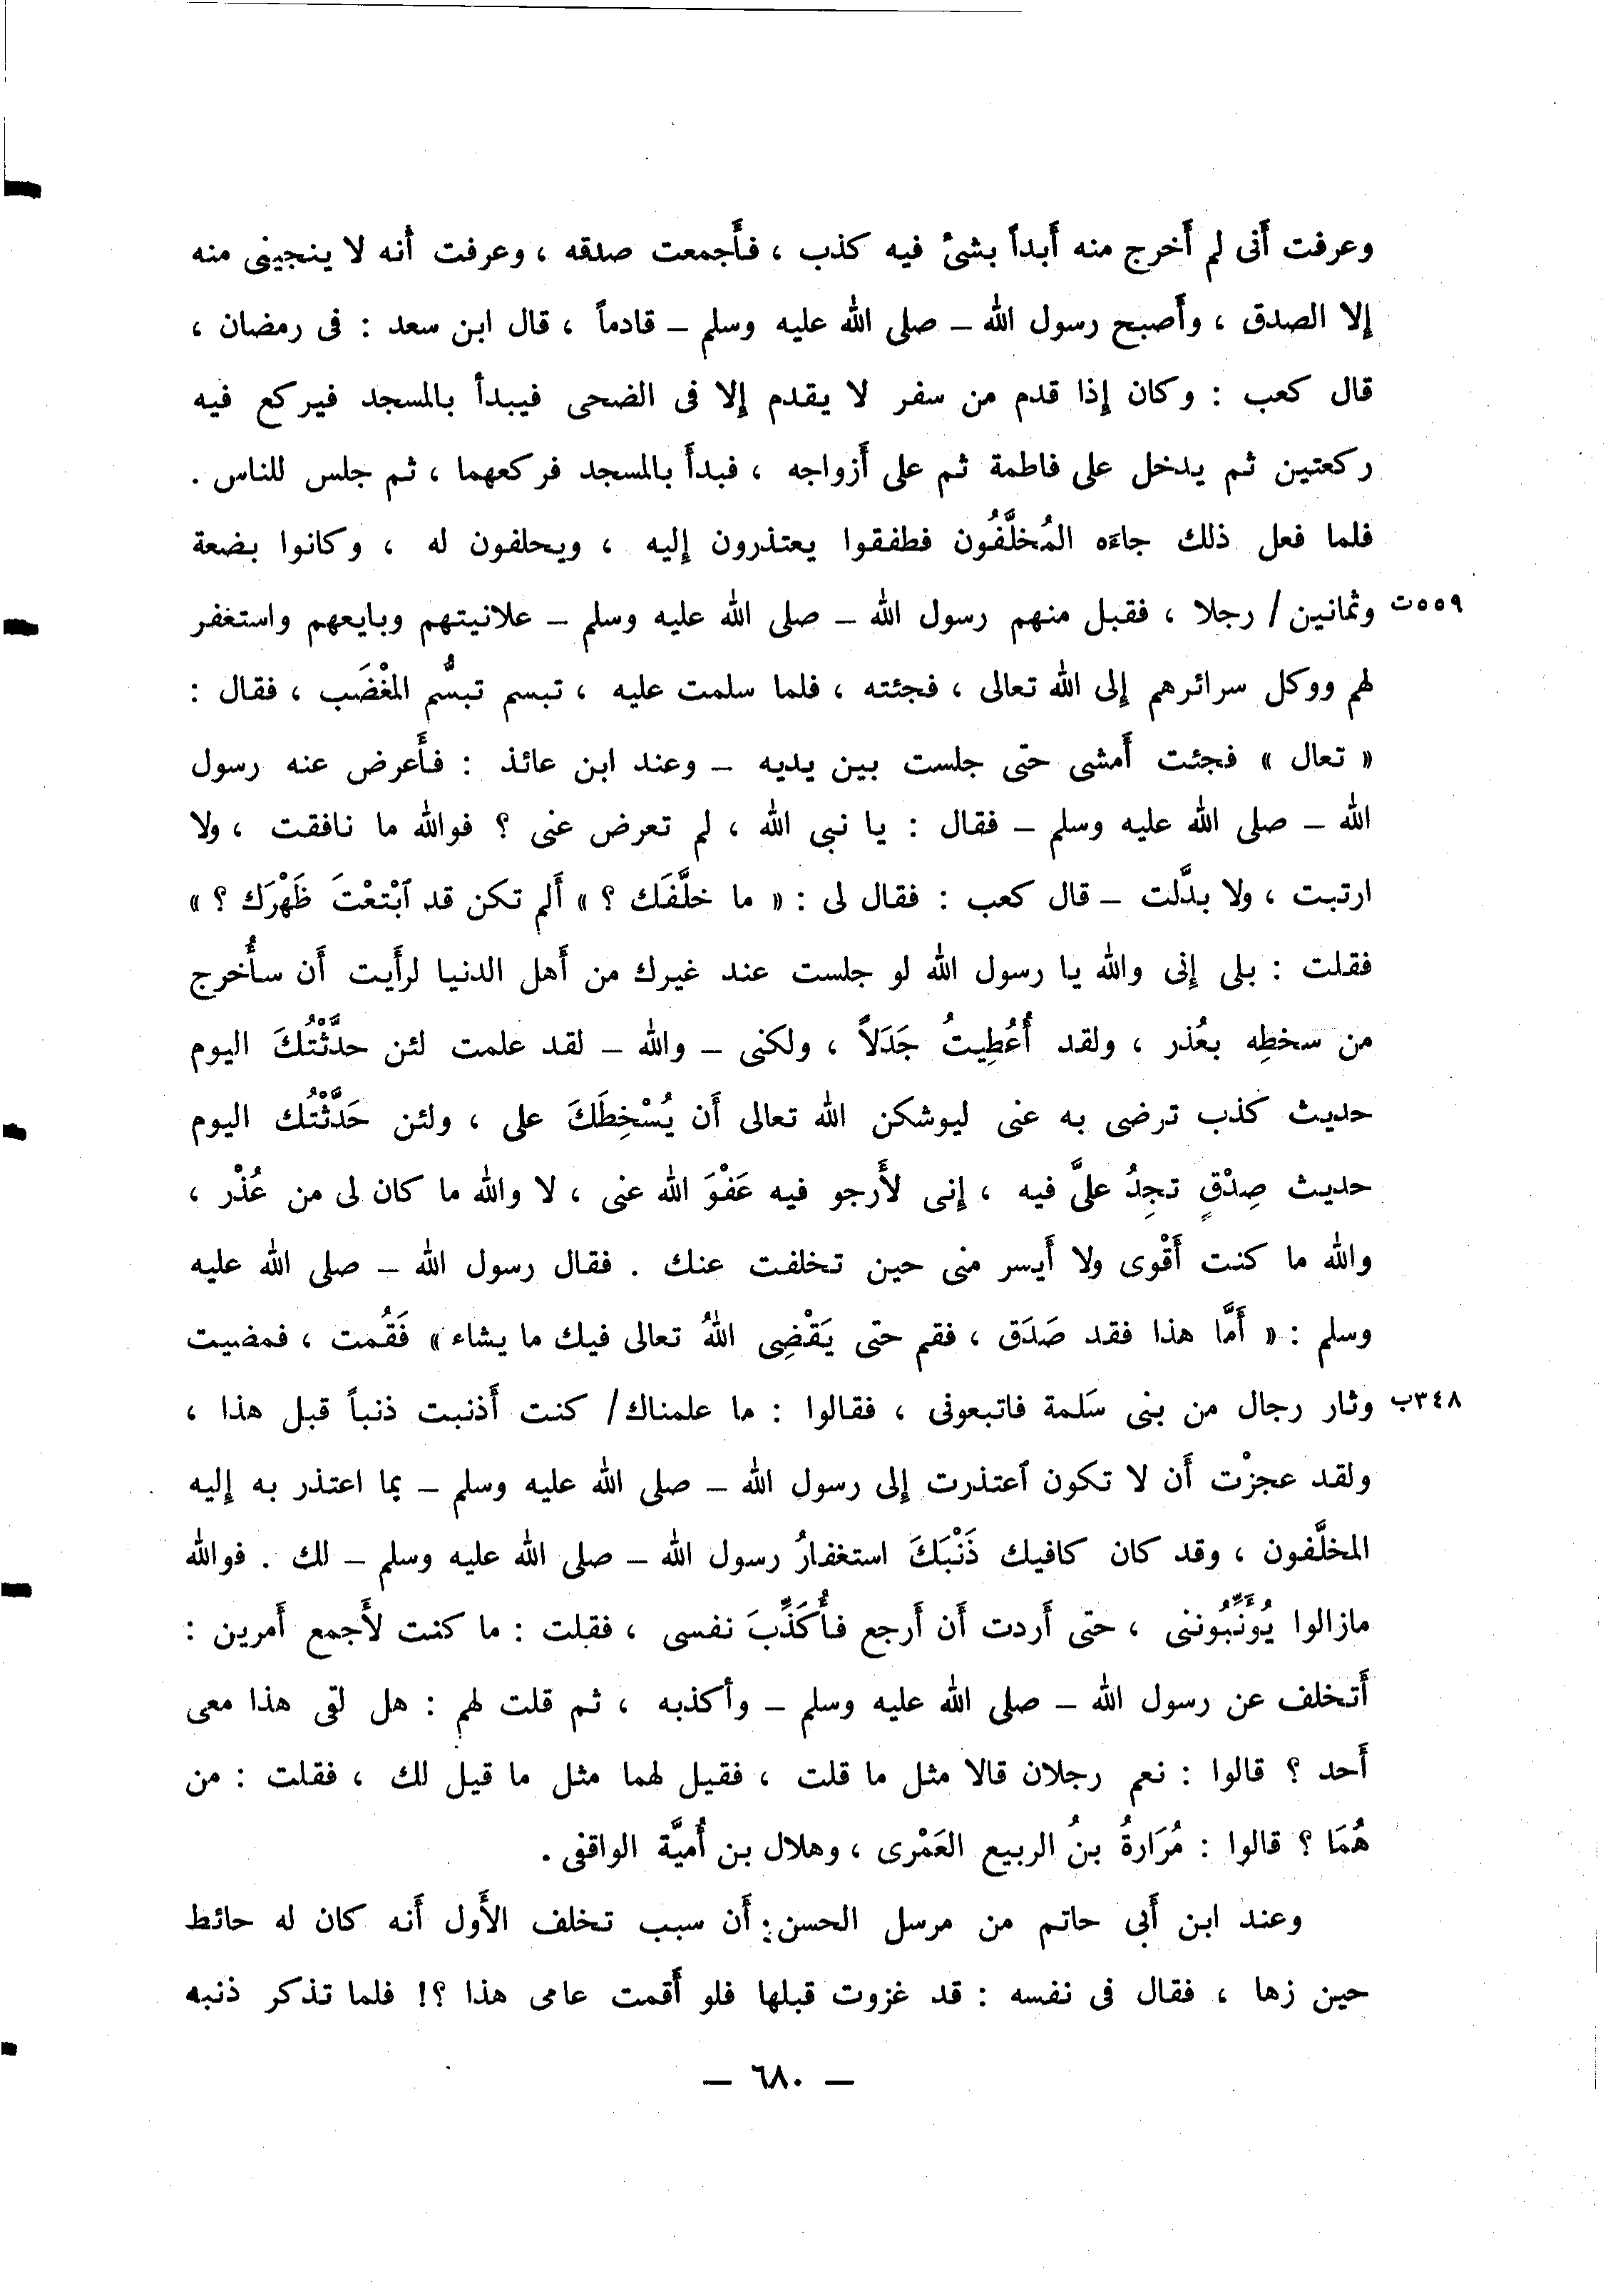 وعرفت أَنى لم أَخرج منه أَبداً بشىْ فيه كذب ، فأَجمعت صدقه ، وعرفت أنه لا ينجينى منه
إلا الصدق ، وأَصبح رسول الله – صلى الله عليه وسلم – قادماً ، قال ابن سعد : فى رمضان ،
قال كعب : وكان إذا قدم من سفر لا يقدم إلا فى الضحى فيبدأ بالمسجد فيركع فيه
ركعتين ثم يدخل على فاطمة ثم على أَزواجه ، فبدأَ بالمسجد فركعهما ، ثم جلس للناس .
فلما فعل ذلك جاءَه المُخلَّفُون فطفقوا يعتذرون إليه ، ويحلفون له ، وكانوا بضعة
٥٥٩ت وثمانين / رجلا ، فقبل منهم رسول الله – صلى الله عليه وسلم – علانيتهم وبايعهم واستغفر
لهم ووكل سرائرهم إلى الله تعالى ، فجئته ، فلما سلمت عليه ، تبسم تبسُّم المغْضَب ، فقال :
« تعال » فجئت أَمشى حتى جلست بين يديه – وعند ابن عائذ : فأَعرض عنه رسول
الله – صلى الله عليه وسلم – فقال : يا نبى الله ، لم تعرض عنى ؟ فوالله ما نافقت ، ولا
ارتبت ، ولا بدَّلت – قال كعب : فقال لى : « ما خلَّفَك ؟ » أَلم تكن قد ٱبْتعْتَ ظَهْرَك ؟ »
فقلت : بلى إنى والله يا رسول الله لو جلست عند غيرك من أَهل الدنيا لرأَيت أَن سأُخرج
من سخطِه بعُذر ، ولقد أُعُطِيتُ جَدَلاً ، ولكنى – والله – لقد علمت لئن حدَّثْتُكَ اليوم
حديث كذب ترضى به عنى ليوشكن الله تعالى أَن يُسْخِطَكَ على ، ولئن حَدَّثْتُك اليوم
حديث صِدْقٍ تجِدُ علىَّ فيه ، إنى لأَرجو فيه عَفْوَ الله عنى ، لا والله ما كان لى من عُذْر ،
والله ما كنت أَقْوى ولا أَيسر منى حين تخلفت عنك . فقال رسول الله – صلى الله عليه
وسلم : « أَمَّا هذا فقد صَدَق ، فقم حتى يَقْضِى اللهُ تعالى فيك ما يشاء » فَقُمت ، فمضيت
٣٤٨ب وثار رجال من بنى سَلمة فاتبعونى ، فقالوا : ما علمناك/ كنت أَذنبت ذنباً قبل هذا ،
ولقد عجزْت أَن لا تكون ٱعتذرت إلى رسول الله – صلى الله عليه وسلم – بما اعتذر به إليه
المخلَّفون ، وقد كان كافيك ذَنْبَكَ استغفارُ رسول الله – صلى الله عليه وسلم – لك . فوالله
مازالوا يُؤَنِّبُوننى ، حتى أَردت أَن أَرجع فأُكَذِّبَ نفسى ، فقلت : ما كنت لأَجمع أَمرين :
أَتخلف عن رسول الله – صلى الله عليه وسلم – وأكذبه ، ثم قلت لهم : هل لقى هذا معى
أَحد ؟ قالوا : نعم رجلان قالا مثل ما قلت ، فقيل لهما مثل ما قيل لك ، فقلت : من
هُمَا ؟ قالوا : مُرَارةُ بنُ الربيع العَمْرى ، وهلال بن أُميَّة الواقفى .
وعند ابن أَبى حاتم من مرسل الحسن : أَن سبب تخلف الأَول أَنه كان له حائط
حين زها ، فقال فى نفسه : قد غزوت قبلها فلو أَقمت عامى هذا ؟! فلما تذكر ذنبه
– ٦٨٠ –